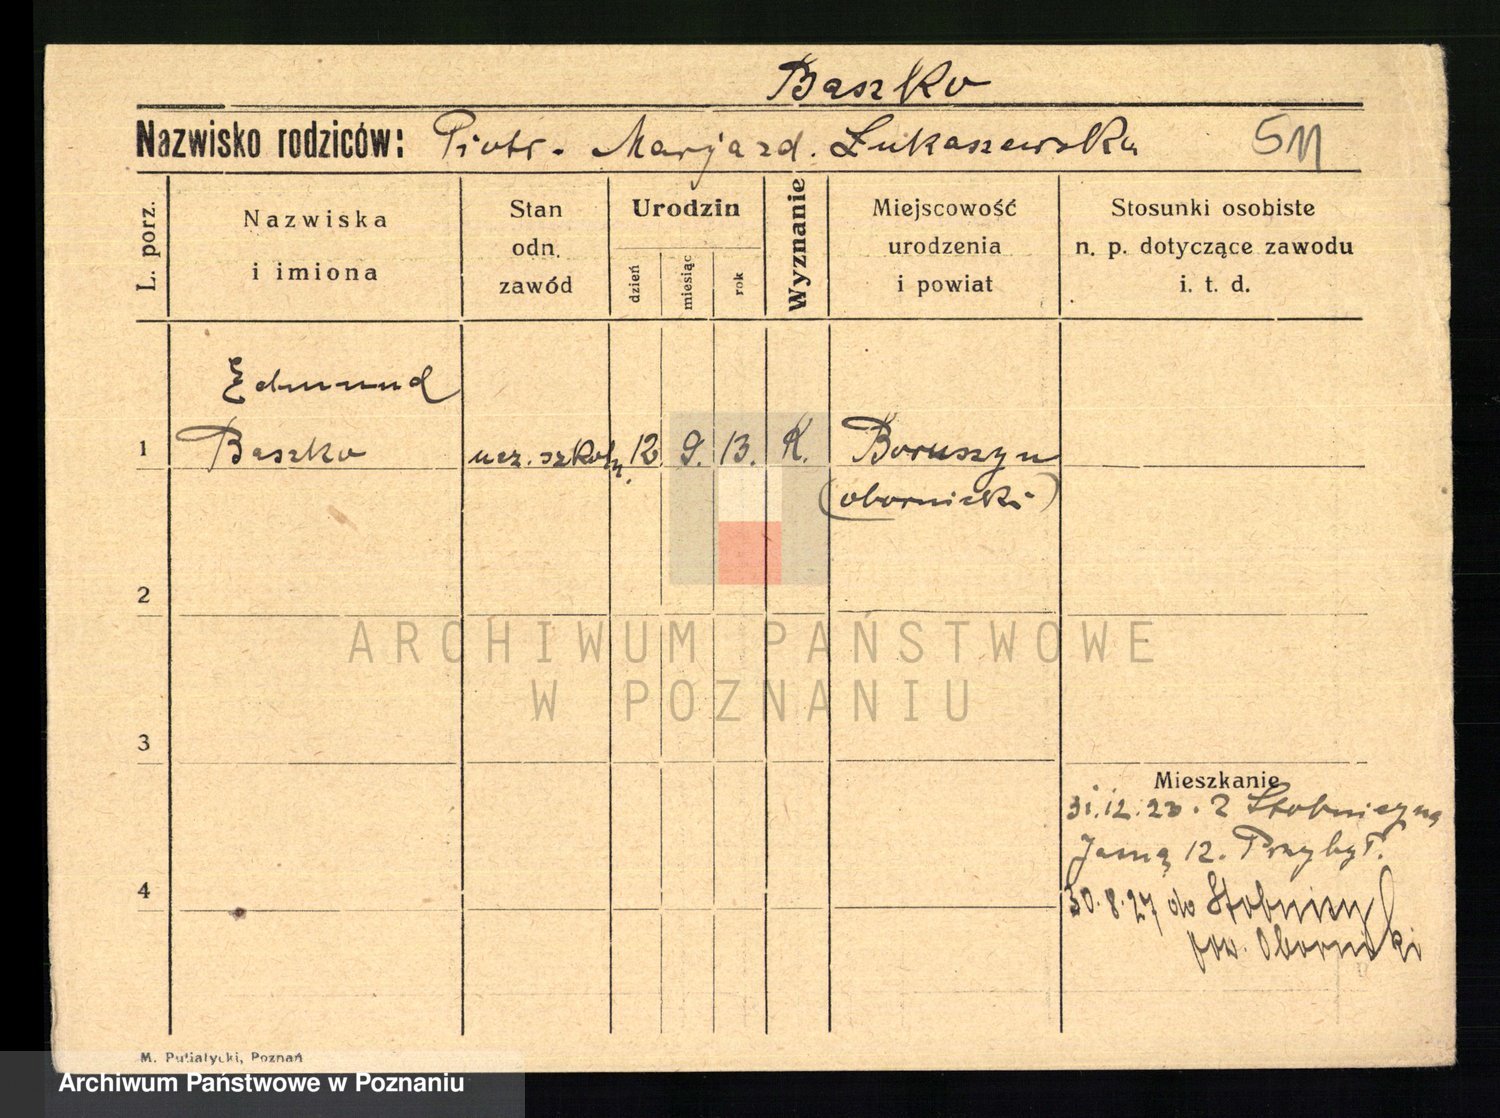 Baszko
Nazwisko rodziców: Piotr. Marja zd. Łukaszewska 511
L. porz.
Nazwiska
i imiona
Stan
odn.
zawód
Urodzin
dzień
miesiąc
rok
Wyznanie
Miejscowość
urodzenia
i powiat
Stosunki osobiste
n. p. dotyczące zawodu
i. t. d.
Edmund
1 Baszko ucz. szkoły. 12. 9. 13. K. Boruszyn
(obornicki)
2
ARCHIWUM PAŃSTWOWE
W POZNANIU
3
Mieszkanie
31.12.23. z Stobnicy na
Jasną 12. Przybył.
4
30.8.27 do Stobnicy
pow. Obornicki
M. Putiatycki, Poznań
Archiwum Państwowe w Poznaniu